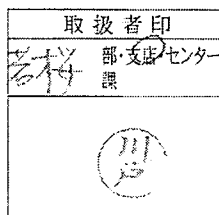 取扱者印
若桜 部・支店・センター
課
川口